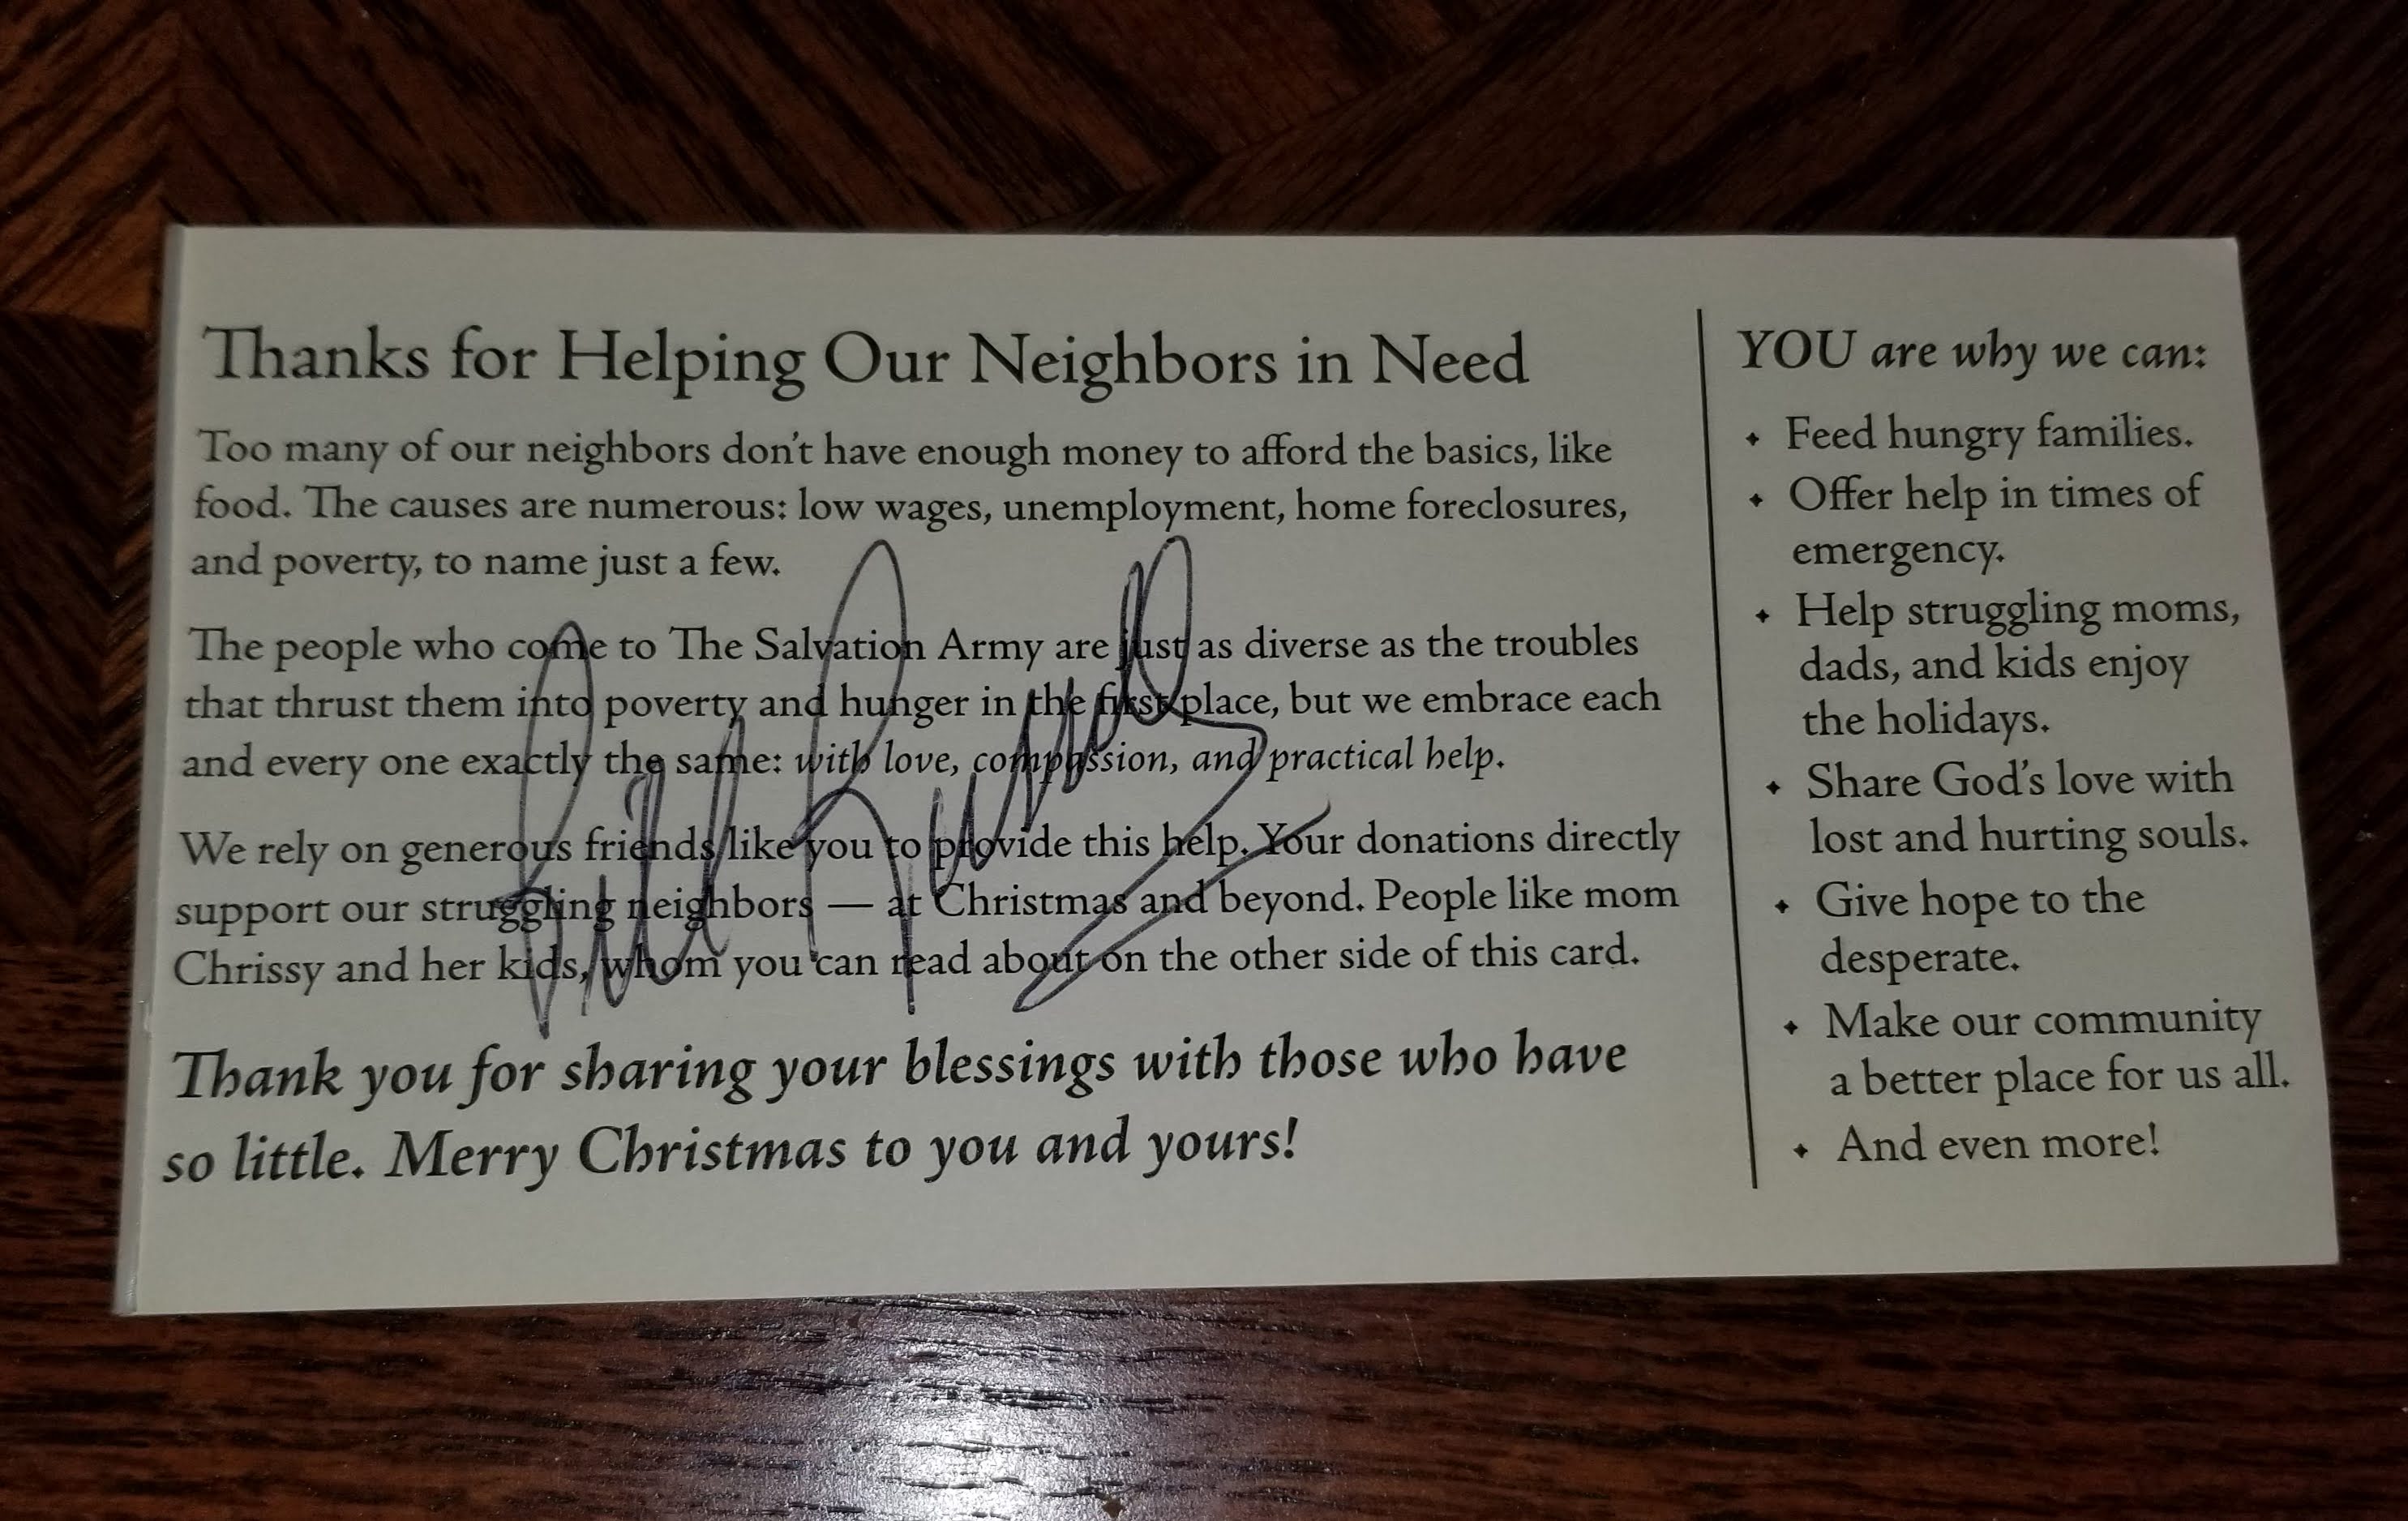 Thanks for Helping Our Neighbors in Need
Too many of our neighbors don't have enough money to afford the basics, like
food. The causes are numerous: low wages, unemployment, home foreclosures,
and poverty, to name just a few.
The people who come to The Salvation Army are just as diverse as the troubles
that thrust them into poverty and hunger in the first place, but we embrace each
and every one exactly the same: with love, compassion, and practical help.
We rely on generous friends like you to provide this help. Your donations directly
support our struggling neighbors — at Christmas and beyond. People like mom
Chrissy and her kids, whom you can read about on the other side of this card.
Thank you for sharing your blessings with those who have
so little. Merry Christmas to you and yours!
YOU are why we can:
Feed hungry families.
Offer help in times of
emergency.
Help struggling moms,
dads, and kids enjoy
the holidays.
Share God's love with
lost and hurting souls.
Give hope to the
desperate.
Make our community
a better place for us all.
And even more!